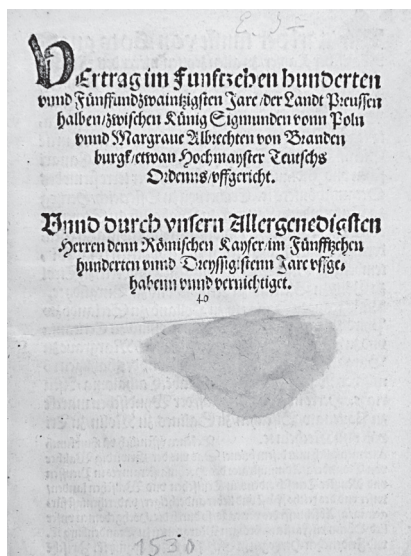 VErtrag im Funfftzehen hunderten
vnnd Fünffundzwaintzigsten Jare/der Landt Preussen
halben/zwischen Künig Sigmunden vonn Poln
vnnd Margraue Albrechten von Branden
burgk/etwan Hochmayster Teutschs
Ordenns/vffgericht.
Vnnd durch vnsern Allergenedigsten
Herren denn Römischen Kayser/im Fünfftzehen
hunderten vnnd Dreyssigistenn Jare vffge,
habenn vnnd vernichtiget.
40
1530